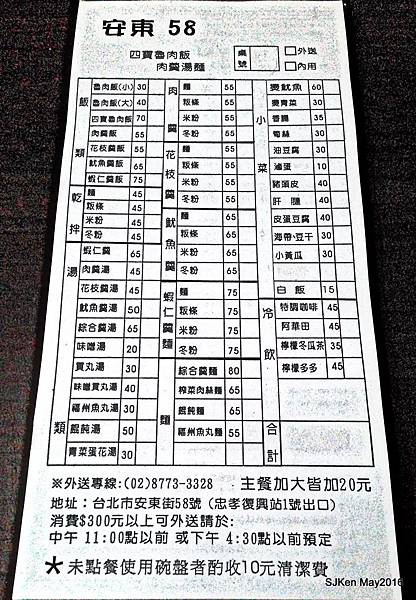 安東 58
四寶魯肉飯
肉羹湯麵
桌號
外送
內用
飯類
魯肉飯(小) 30
魯肉飯(大) 40
四寶魯肉飯 70
肉羹飯 55
花枝羹飯 55
魷魚羹飯 65
蝦仁羹飯 75
乾拌
麵 45
粄條 45
米粉 45
冬粉 45
湯類
蝦仁羹 65
肉羹湯 45
花枝羹湯 45
魷魚羹湯 50
綜合羹湯 65
味噌湯 20
貢丸湯 30
味噌貢丸湯 40
福州魚丸湯 30
餛飩湯 50
青菜蛋花湯 30
肉羹
麵 55
粄條 55
米粉 55
冬粉 55
花枝羹
麵 55
粄條 55
米粉 55
冬粉 55
魷魚羹
麵 65
粄條 65
米粉 65
冬粉 65
蝦仁羹麵
麵 75
粄條 75
米粉 75
冬粉 75
麵
綜合羹麵 80
榨菜肉絲麵 65
餛飩麵 65
福州魚丸麵 55
小菜
燙魷魚 60
燙青菜 30
香腸 35
筍絲 30
油豆腐 30
滷蛋 10
豬頭皮 40
肝膶 40
皮蛋豆腐 40
海帶、豆干 30
小黃瓜 30
白飯 15
冷飲
特調咖啡 45
阿華田 45
檸檬冬瓜茶 35
檸檬多多 45
合計
※外送專線:(02)8773-3328 主餐加大皆加20元
地址：台北市安東街58號（忠孝復興站1號出口）
消費$300元以上可外送請於:
中午 11:00點以前 或下午 4:30點以前預定
★未點餐使用碗盤者酌收10元清潔費
SJKen May2016